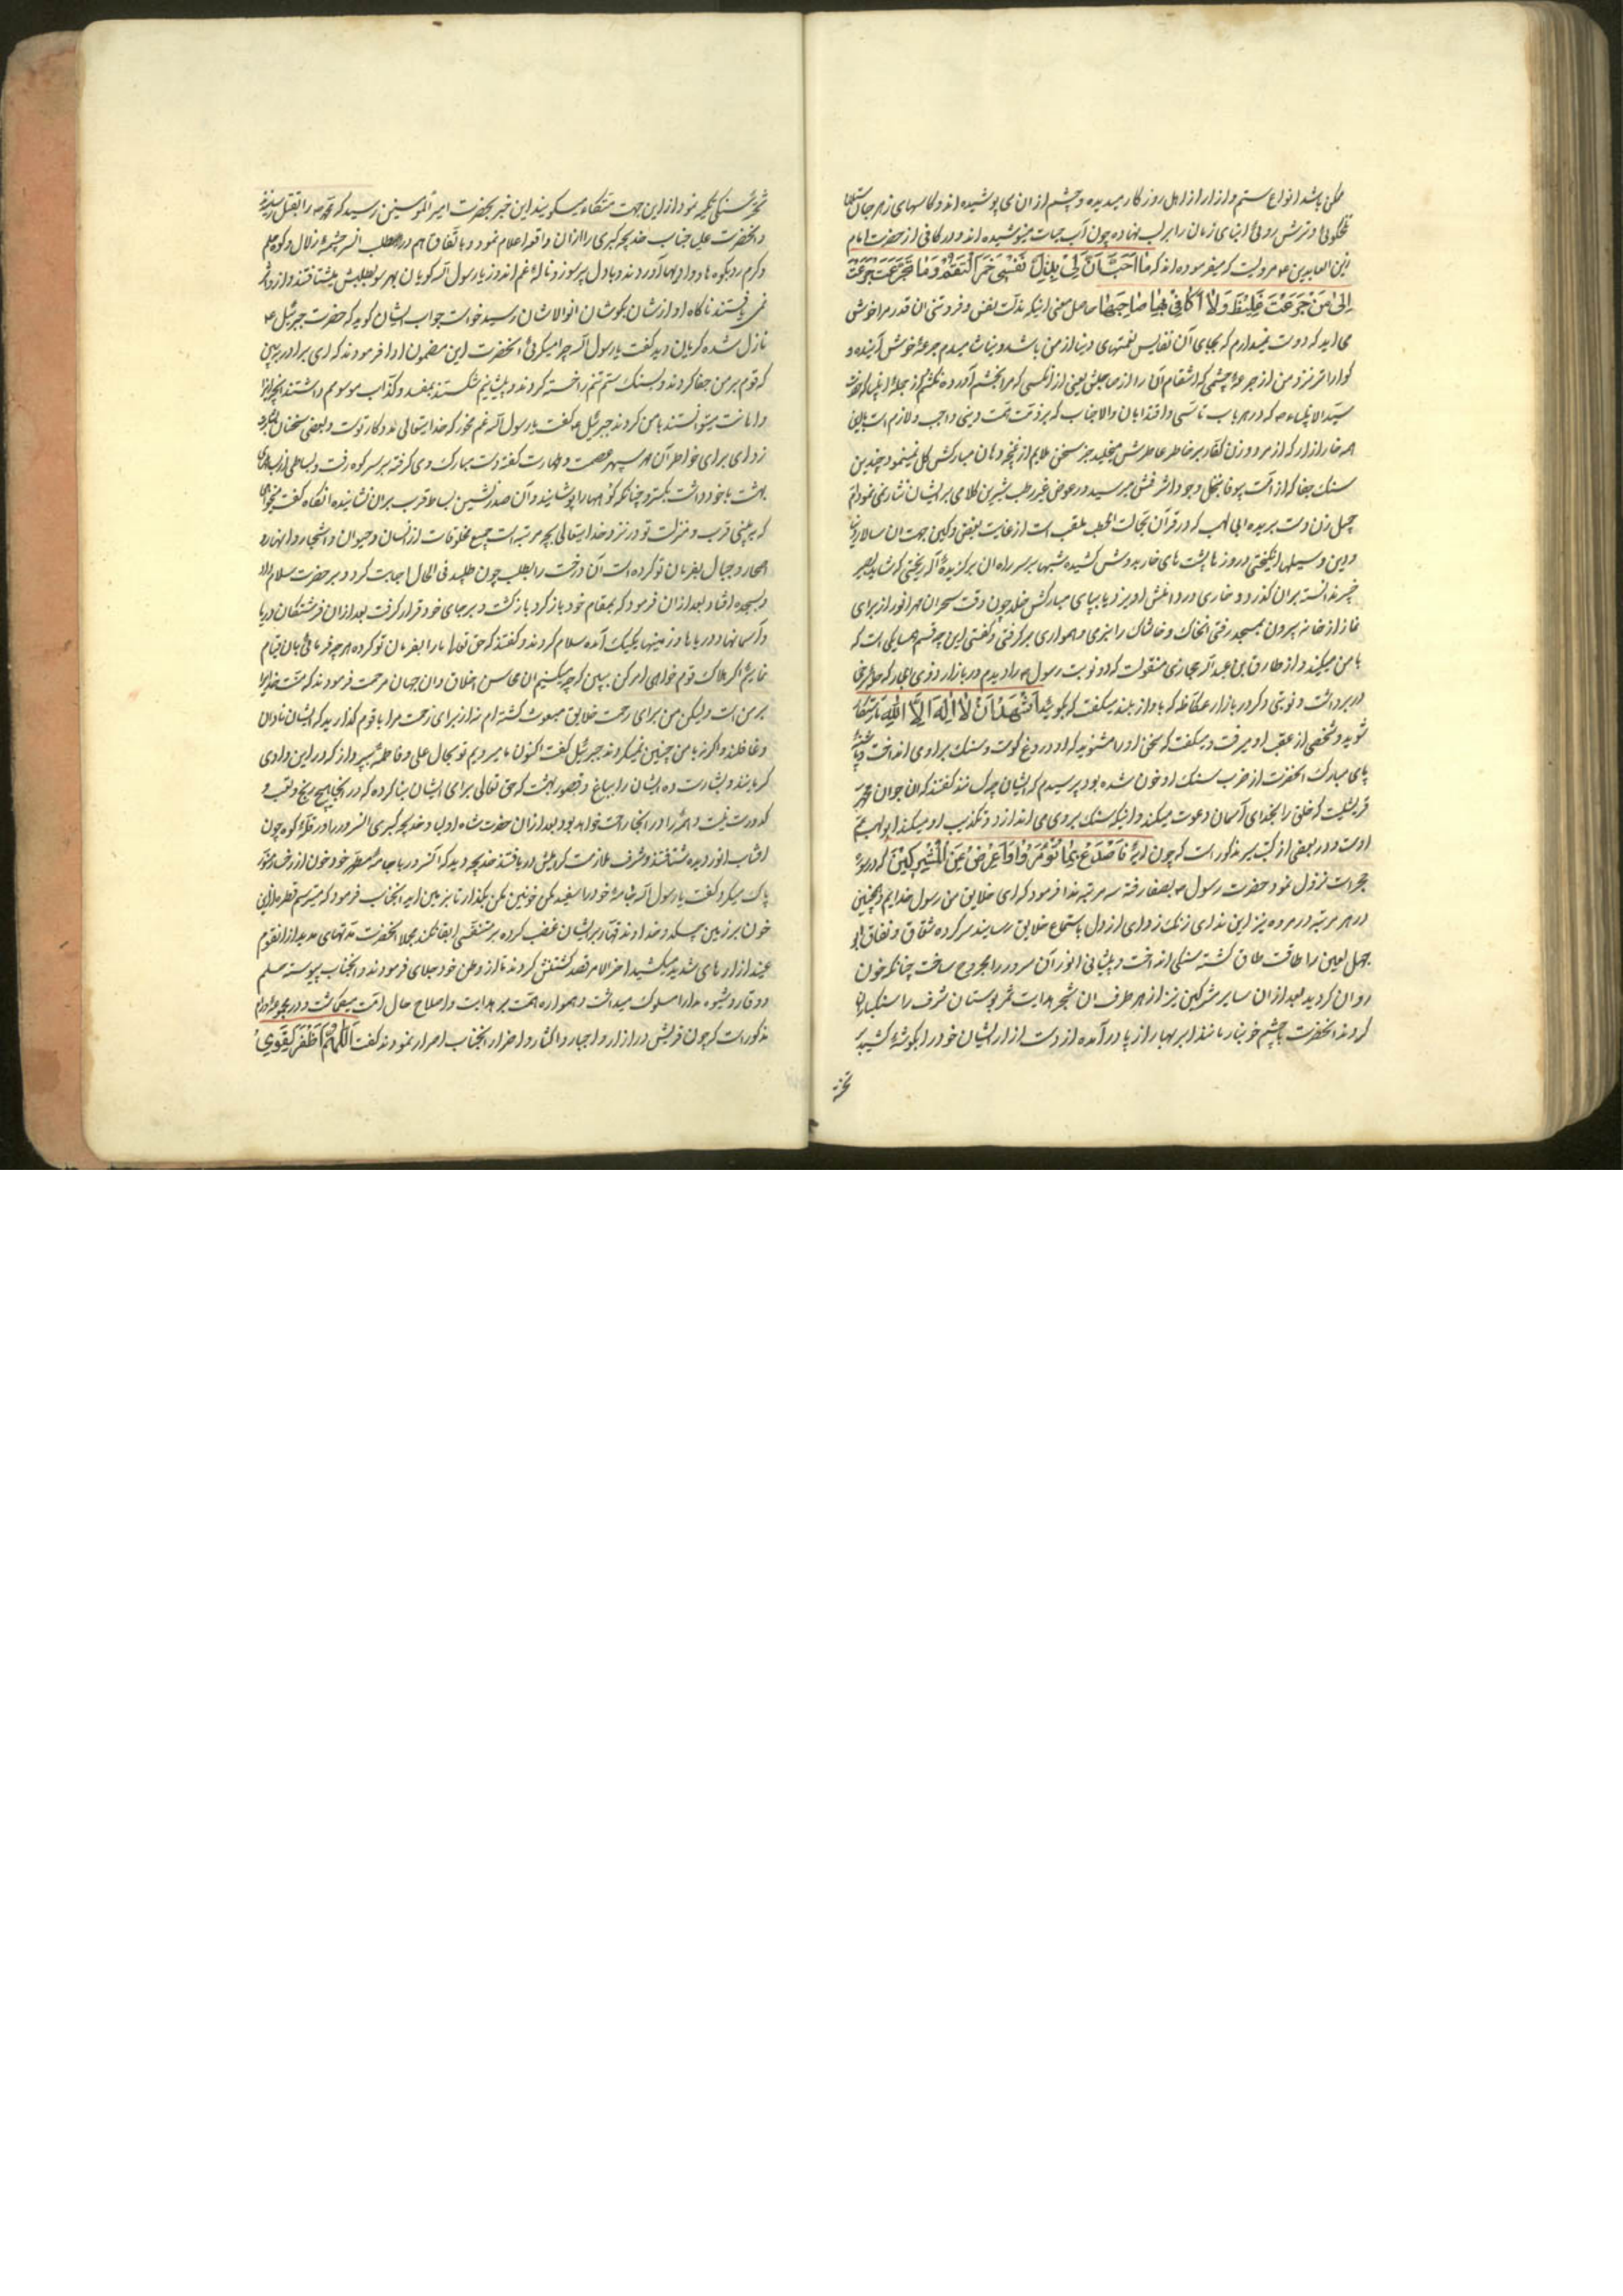 ممکن باشد انواع ستم و ازار از اهل روزکار میدیده و چشم از ان می پوشیده اند و کاسهای زهر جان ستان
تلخکوئی و ترش روئی ابنای زمان را بر لب نهاده چون آب حیات مینوشیده اند و در کافی از حضرت امام
زین العابدین ع مرویست که میفرموده اند که ما اُحِبُّ اَنَّ لِیْ بِذُلِّ نَفْسِیْ حُمْرَ النَّعَمْ وَ مَا تَجَرَّعْتُ جُرْعَةً
اَحَبَّ اِلَیَّ مِنْ جُرْعَةِ غَیْظٍ وَلاٰ اُکَافِیْ بِهَا صَاحِبَهَا حاصل معنی اینکه بذلت نفس و فروتنی ان قدر مرا خوش
می اید که دوست نمیدارم که بجای آن نفایس نعمتهای دنیا از من باشد و بیاشامیدم جرعهٔ خوش آینده و
کواراتر نزد من از جرعهٔ خشمی که انتقام آن را از صاحبش یعنی از آنکسی که مرا بخشم آورده نکشم و از جمله
سید الانبیاء ص که در هر باب تاسی و اقتدا بان والاجناب که بر ذمت همت دینی واجب و لازم است
هر خار ازار که از مرد و زن کفار بر خاطر عاطرش میخلید جز سخن ملایم از غنچه دهان مبارکش کل نمینمود و چندین
سنک جفا که از امت بیوفا بنخل وجود اشرفش میرسید در عوض غیر رطب شیرین کلامی بر ایشان نثار نمی نمود ام
جمیل زن دست بریده ابی لهب که در قرآن بحمالت الحطب ملقب است از غایت بغض و کین جهت ان سالار
دین وسیلها انکیختی در روزها پشته های خار بدوش کشیده شبها بر سر راه ان برکزیدهٔ آله ریختی که شاید
خبر ندانسته بران کذرد و خاری در دامنش اویزد یا بپای مبارکش خلد چون وقت سحر ان مهر انور از برای
نماز از خانه بیرون بمسجد رفتی انخاک و خاشاک را بنرمی و همواری برکرفتی و کفتی این چه قسم همسایکی است که
با من میکنید و از طارق بن عبد الله محاربی منقولست که دو نوبت رسول ص را دیدم در بازار ذوی المجاز که حله سرخی
در بر داشت و نوبتی دکر در بازار عکاظ که باواز بلند میکفت که بکوئید اَشْهَدُ اَنْ لاٰ اِلٰهَ اِلاَّ اللّٰه تا رستکار
شوید و شخصی از عقب او میرفت و میکفت که سخن او را مشنوید که او دروغ کوست و سنک براو می انداخت و
پای مبارک انحضرت از ضرب سنک او خون شده بود پرسیدم که ایشان چه کسانند کفتند که ان جوان محمد
قریشیست که خلق را بخدای آسمان دعوت میکند و انیکه سنک بر وی می اندازد و تکذیب او میکند ابولهب عم
اوست و در بعضی از کتب سیر مذکور است که چون ایهٔ فَاصْدَعْ بِمَا تُؤْمَرُ وَاَعْرِضْ عَنِ الْمُشْرِکِیْنَ که در سورهٔ
حجر است نزول نمود حضرت رسول ص بصفا رفته سه مرتبه ندا فرمود که ای خلایق من رسول خدایم و همچنین
در هر مرتبه در مروه نیز این ندای زنک زدای از دل باستماع خلایق رسانید سر کرده شقاق و نفاق ابو
جهل لعین را طاقت طاق کشته سنکی انداخت و پیشانی انور آن سرور را مجروح ساخت چنانکه خون
روان کردید بعد از ان سایر مشرکین نیز از هر طرف ان شجر هدایت ثمر بوستان شرف را سنکباران
کردند انحضرت با چشم خونبار مانند ابر بهار از پا درآمده از دست ازار ایشان خود را بکوشهٔ کشیده
تخته
تخته سنکی تکیه نمود از این جهت متکاء میکویند این خبر بحضرت امیر المومنین رسید که محمد ص را بقتل رسانیدند
و انحضرت علی جناب خدیجه کبری را از ان واقعه اعلام نمود و باتفاق هم در طلب انسر چشمهٔ زلال و کوه حلم
و کرم رو بکوه ها و وادیها آوردند و با دل پر سوز و نالهٔ غم اندوز یا رسول الله کویان بهر سو بطلبش میشتافتند و از و اثر
نمی یافتند ناکاه اوازشان بکوش ان والاشان رسید خواست جواب ایشان کوید که حضرت جبرئیل ع
نازل شده کریان دید کفت یا رسول الله چرا میکریی انحضرت این مضمون ادا فرمودند که ای برادر ببین
که قوم بر من جفا کردند و بسنک ستم تنم را خسته کردند و پیشانیم شکستند بمفسد و کذاب موسومم داشتند انچه از ایذا
و اهانت میتوانستند با من کردند جبرئیل ع کفت یا رسول الله غم مخور که خدایتعالی مددکار توست و بعضی سخنان
زدای برای خواطر آن مهر سپهر عصمت و طهارت کفته دست مبارک وی کرفته بر سر کوه رفت و بساطی از بساطهای
بهشت با خود داشت بکسترد چنانکه کوهها را پوشانید و آن صدر نشین بساط قرب بران نشانیده انکاه کفت میخواهی
که ببینی قرب و منزلت تو در نزد خدایتعالی بچه مرتبه است جمیع مخلوقات از انسان و حیوان و اشجار و انهار و
احجار و جبال بفرمان تو کرده است آن درخت را بطلب چون طلبید فی الحال اجابت کرد و بر حضرت سلام داد
و بسجده افتاد بعد از ان فرمود که بمقام خود باز کرد باز کشت و بر جای خود قرار کرفت بعد از ان فرشتکان دریا
و آسمانها و دریاها و زمینها یکیک آمده سلام کردند و کفتند که حق تعالی ما را بفرمان تو کرده هر چه فرمائی بان قیام
نمائیم اکر هلاک قوم خواهی امر کن ببین که چه میکنیم ان محاسن اخلاق و ان جهان مرحمت فرمودند که منت خدایرا
بر من است ولیکن من برای رحمت خلایق مبعوث کشته ام نه از برای زحمت مرا با قوم کذارید که ایشان نادان
و غافلند و اکر نه با من چنین نمیکردند جبرئیل کفت اکنون ما میرویم تو بحال علی و فاطمه بپرداز که در این وادی
کریانند و بشارت ده ایشان را بباغ و قصور بهشت که حق تعالی برای ایشان بنا کرده که در انجا هیچ رنج و تعب و
کدورت نیست و همه را در انجا راحت خواهد بود بعد از ان حضرت شاه اولیا و خدیجه کبری انسرور را در قلهٔ کوه چون
افتاب انور دیده شتافتند و شرف ملازمت کرامیش دریافتند خدیجه دید که انسرور با جامهٔ مطهر خود خون از رخسار منور
پاک میکرد کفت یا رسول الله جامهٔ خود را سفید مکن خونین مکن بکذار تا بر زمین اید انجناب فرمود که میترسم قطره از این
خون بر زمین چکد و خداوند قهار بر ایشان غضب کرده بر متنفسی ابقا نکند مجملا انحضرت مدتهای مدید از انقوم
عنید ازارهای شدید میکشید اخر الامر قصد کشتنش کردند تا از وطن خود جلای فرمودند و انجناب پیوسته حلم
و وقار و شیوه مدارا سلوک میداشت و همواره همت بر هدایت و اصلاح حال امت میکماشت و در مجموعهٔ ورام
مذکور است که چون قریش در ازار و اجبار و اکثار و اضرار انجناب اصرار نمودند کفت اَللّٰهُمَّ اغْفِرْ لِقَوْمِیْ